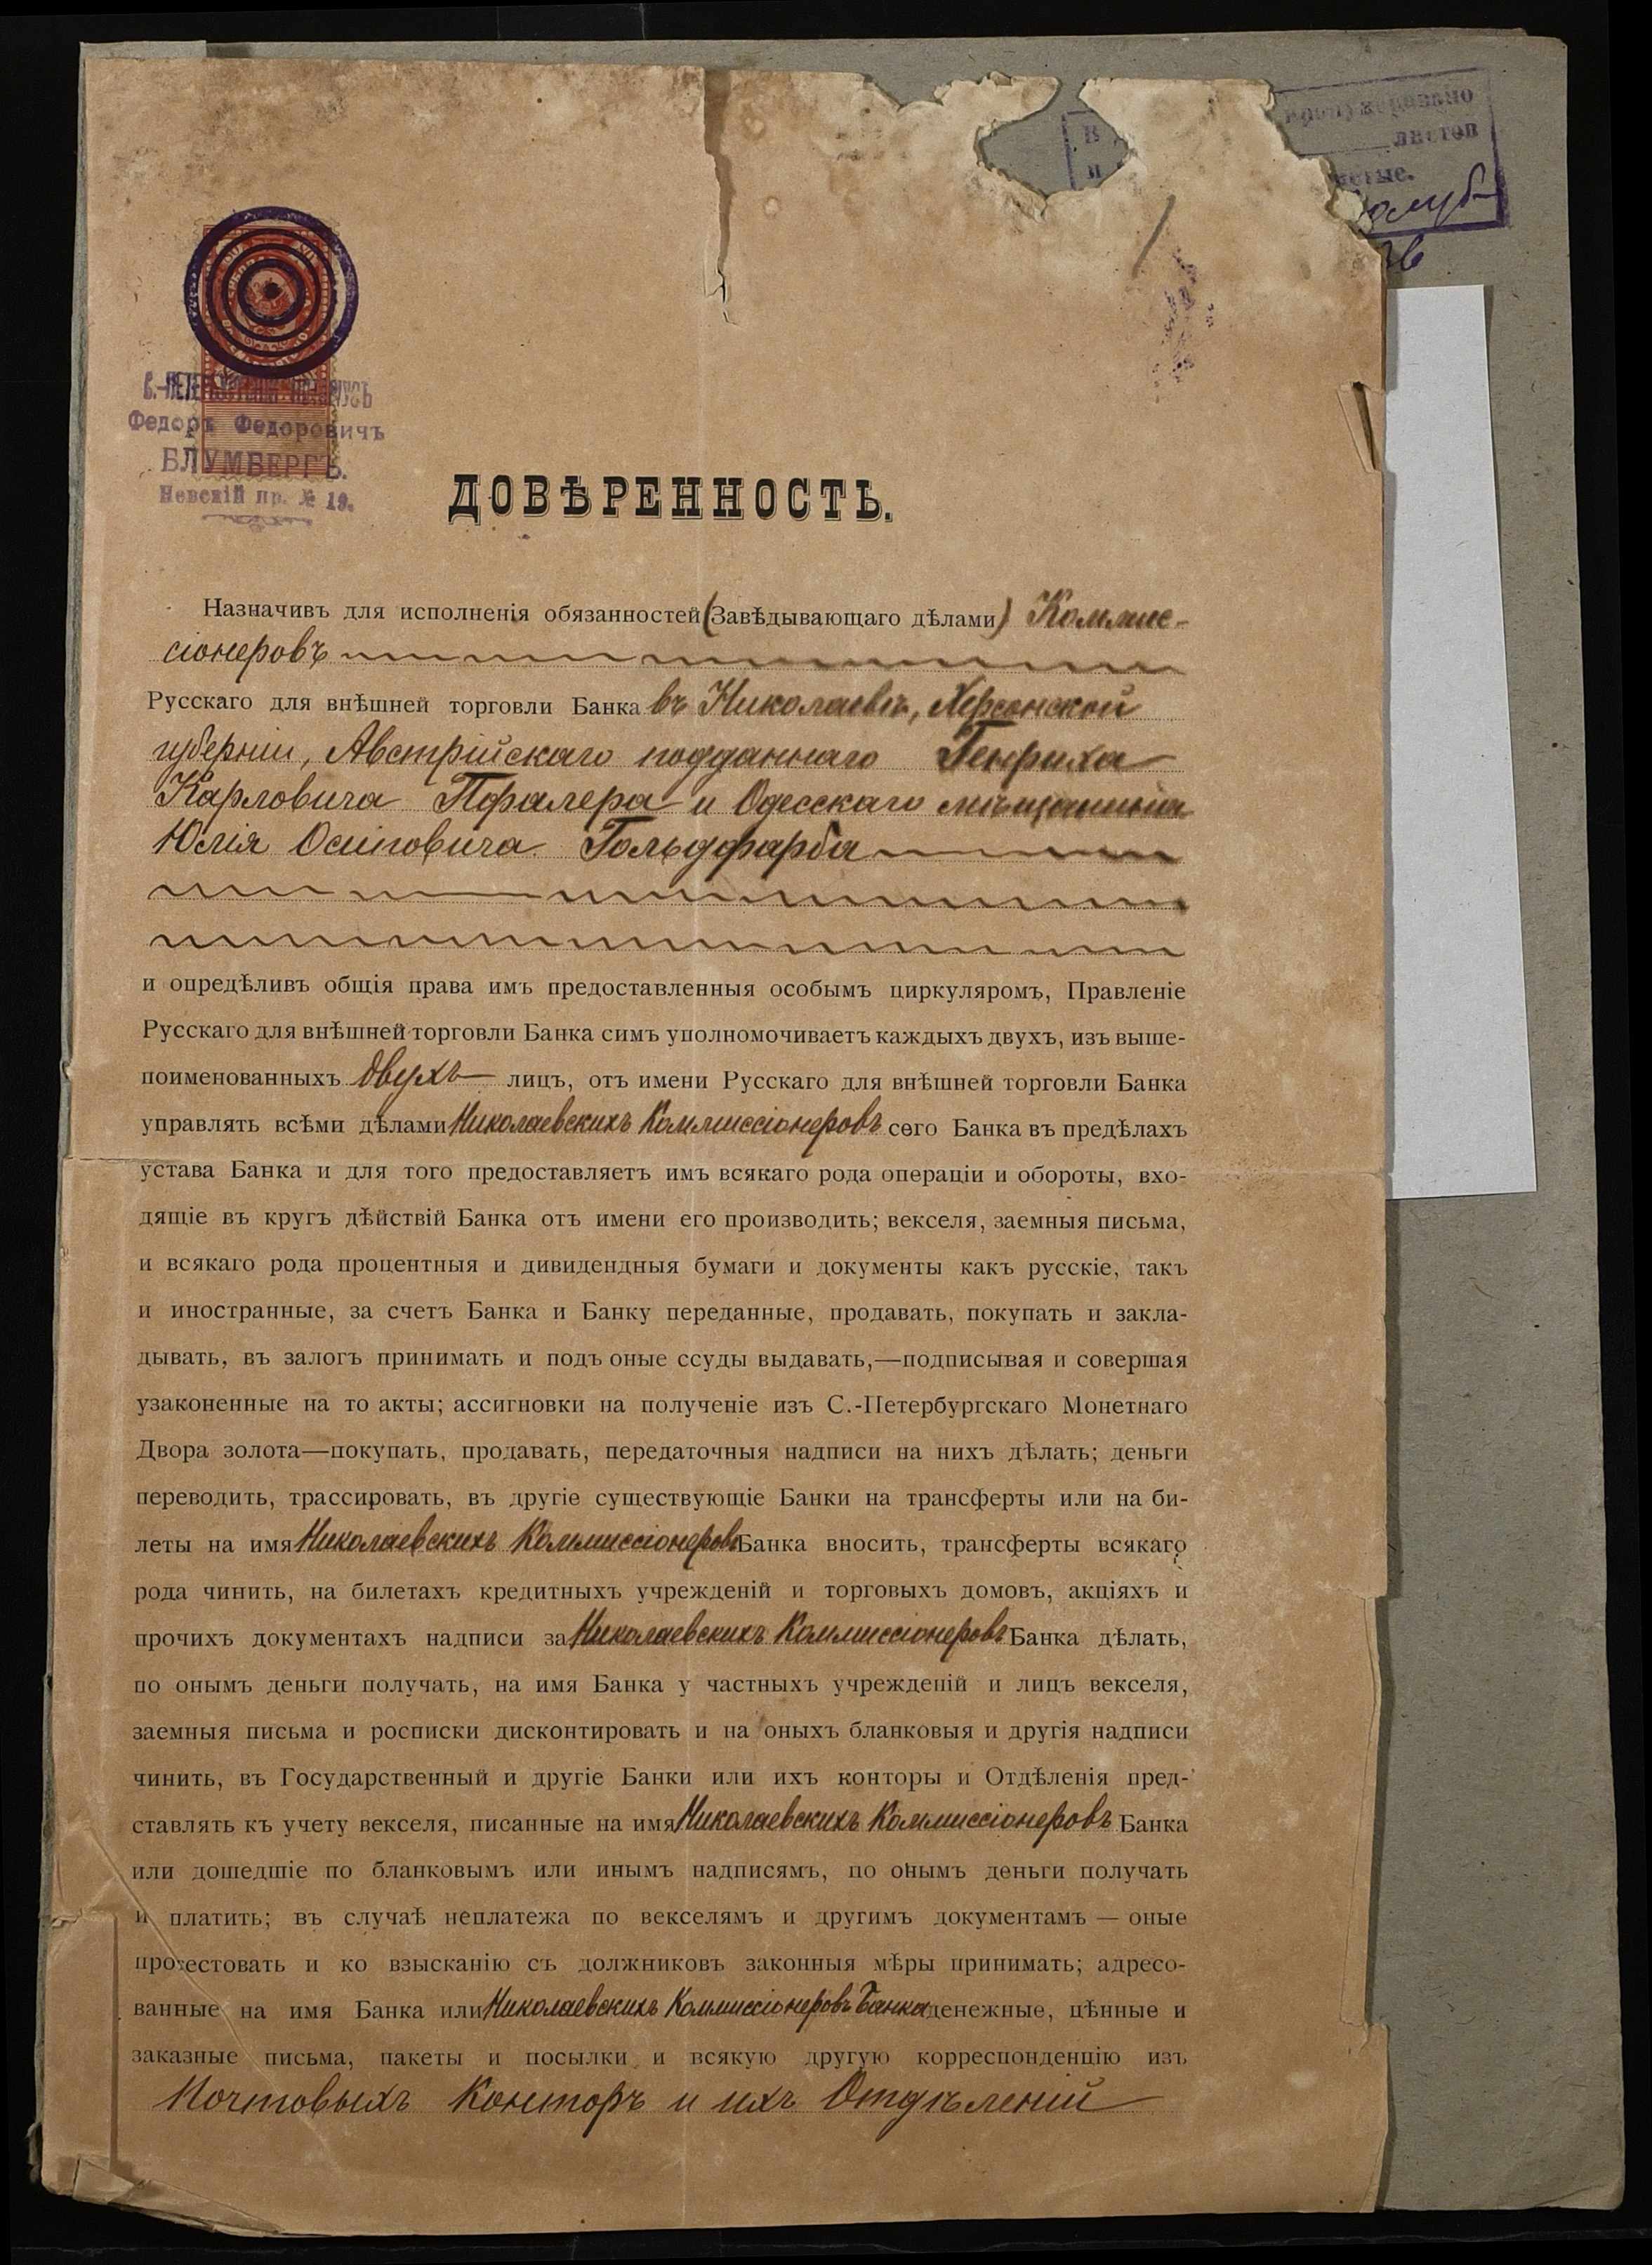 пронумеровано
листов
В
и
С.-ПЕТЕРБУРГСКІЙ НОТАРІУСЪ
Федоръ Федоровичъ
БЛУМБЕРГЪ.
Невскій пр. № 19.
ДОВѢРЕННОСТЬ.
Назначивъ для исполненія обязанностей (Завѣдывающаго дѣлами) Коммис-
сіонеровъ
Русскаго для внѣшней торговли Банка въ Николаевѣ, Херсонской
губерніи, Австрійскаго подданнаго Генриха
Карловича Пфалера и Одесскаго мѣщанина
Юлія Осиповича Гольдфарба
и опредѣливъ общія права имъ предоставленныя особымъ циркуляромъ, Правленіе
Русскаго для внѣшней торговли Банка симъ уполномочиваетъ каждыхъ двухъ, изъ выше-
поименованныхъ двухъ лицъ, отъ имени Русскаго для внѣшней торговли Банка
управлять всѣми дѣлами Николаевскихъ Коммиссіонеровъ сего Банка въ предѣлахъ
устава Банка и для того предоставляетъ имъ всякаго рода операціи и обороты, вхо-
дящіе въ кругъ дѣйствій Банка отъ имени его производить; векселя, заемныя письма,
и всякаго рода процентныя и дивидендныя бумаги и документы какъ русскіе, такъ
и иностранные, за счетъ Банка и Банку переданные, продавать, покупать и закла-
дывать, въ залогъ принимать и подъ оные ссуды выдавать,—подписывая и совершая
узаконенные на то акты; ассигновки на полученіе изъ С.-Петербургскаго Монетнаго
Двора золота—покупать, продавать, передаточныя надписи на нихъ дѣлать; деньги
переводить, трассировать, въ другіе существующіе Банки на трансферты или на би-
леты на имя Николаевскихъ Коммиссіонеровъ Банка вносить, трансферты всякаго
рода чинить, на билетахъ кредитныхъ учрежденій и торговыхъ домовъ, акціяхъ и
прочихъ документахъ надписи за Николаевскихъ Коммиссіонеровъ Банка дѣлать,
по онымъ деньги получать, на имя Банка у частныхъ учрежденій и лицъ векселя,
заемныя письма и росписки дисконтировать и на оныхъ бланковыя и другія надписи
чинить, въ Государственный и другіе Банки или ихъ конторы и Отдѣленія пред-
ставлять къ учету векселя, писанные на имя Николаевскихъ Коммиссіонеровъ Банка
или дошедшіе по бланковымъ или инымъ надписямъ, по онымъ деньги получать
и платить; въ случаѣ неплатежа по векселямъ и другимъ документамъ — оные
протестовать и ко взысканію съ должниковъ законныя мѣры принимать; адресо-
ванные на имя Банка или Николаевскихъ Коммиссіонеровъ Банка денежные, цѣнные и
заказные письма, пакеты и посылки и всякую другую корреспонденцію изъ
Почтовыхъ Конторъ и ихъ Отдѣленій